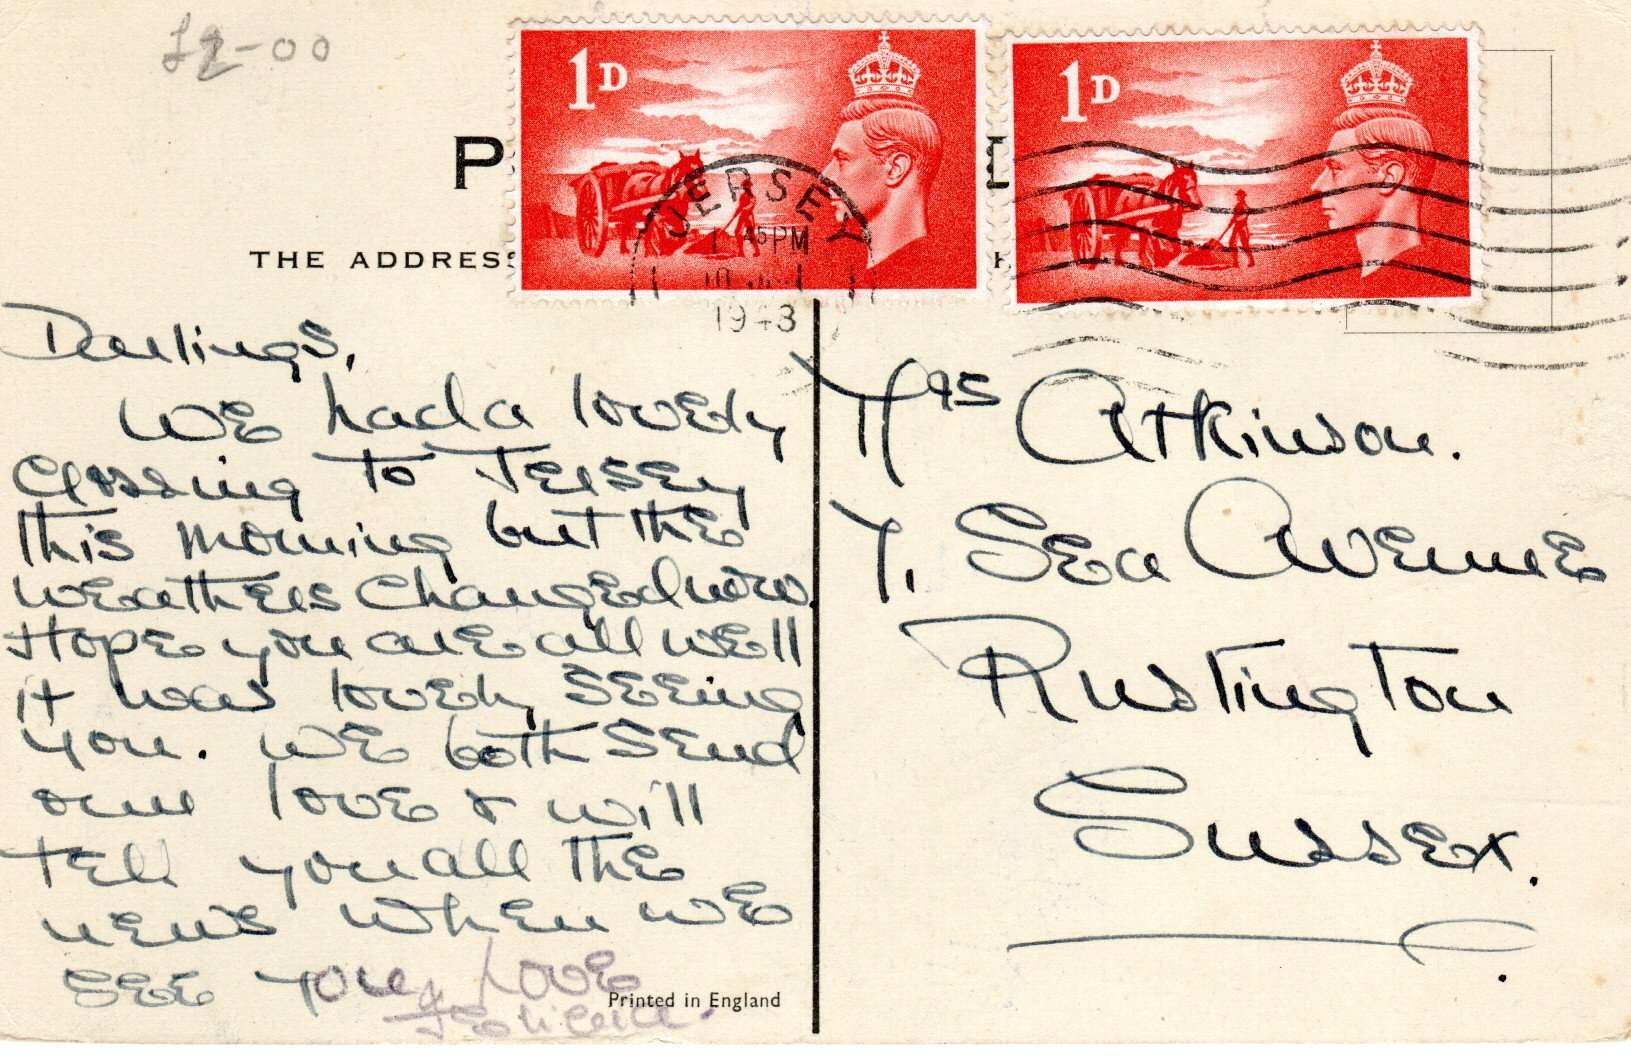 £2-00
1D 1D
P
JERSEY
1 45PM
THE ADDRES
10
1948
Darlings,
WE had a lovely
crossing to Jersey
this morning but the
weathers changed now.
Hope you are all well
it was lovely seeing
you. WE both send
our love & will
tell you all the
news when we
see you, Love
Felicia.
Printed in England
Mrs Atkinson.
7, Sea Avenue
Rustington
Sussex.